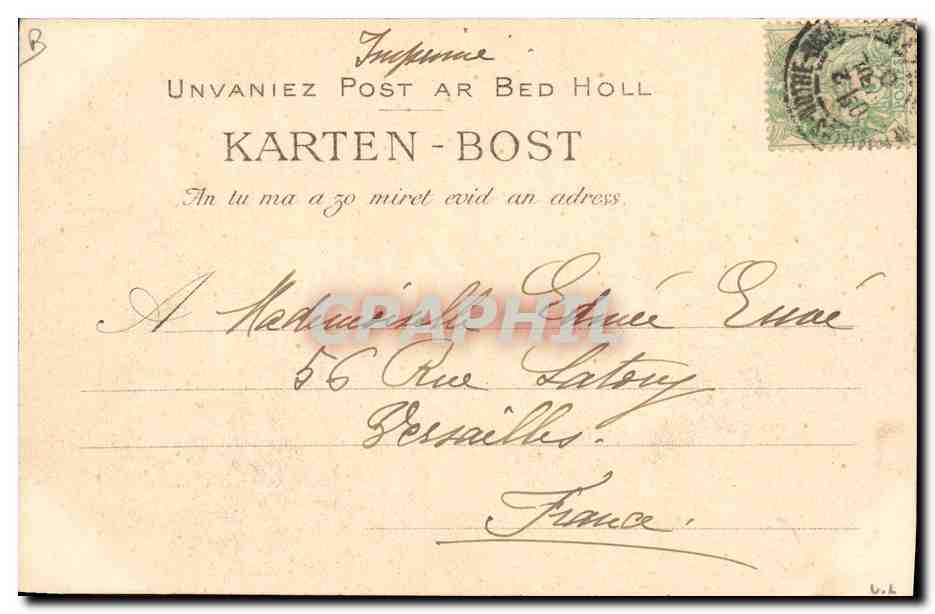 B
Imprimé
UNVANIEZ POST AR BED HOLL
KARTEN-BOST
An tu ma a zo miret evid an adress.
CPAPHIL
A Mademoiselle Edmée Essoé
56 Rue Satory
Versailles.
France.